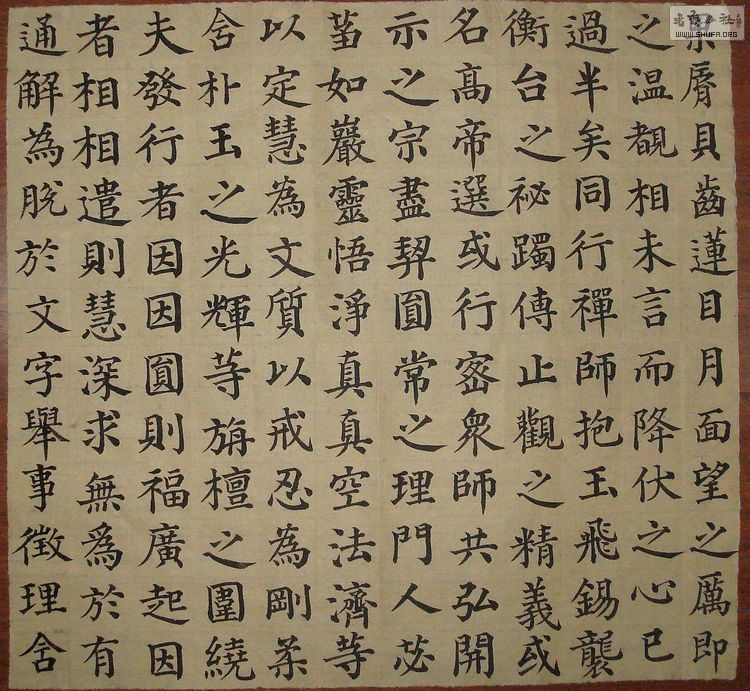 脣貝齒蓮目月面望之厲即
之温覩相未言而降伏之心已
過半矣同行禪師抱玉飛錫襲
衡台之祕躅傳止觀之精義或
名高帝選或行密衆師共弘開
示之宗盡契圓常之理門人苾
蒭如巖靈悟淨真真空法濟等
以定慧為文質以戒忍為剛柔
含朴玉之光輝等旃檀之圍繞
夫發行者因因圓則福廣起因
者相相遣則慧深求無爲於有
通解為脫於文字舉事徵理含
WWW.SHUFA.ORG